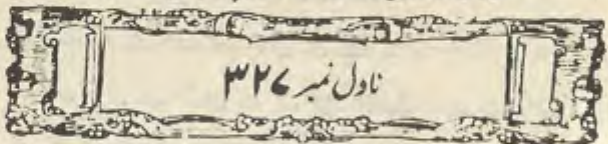 ناول نمبر ۳۲۷